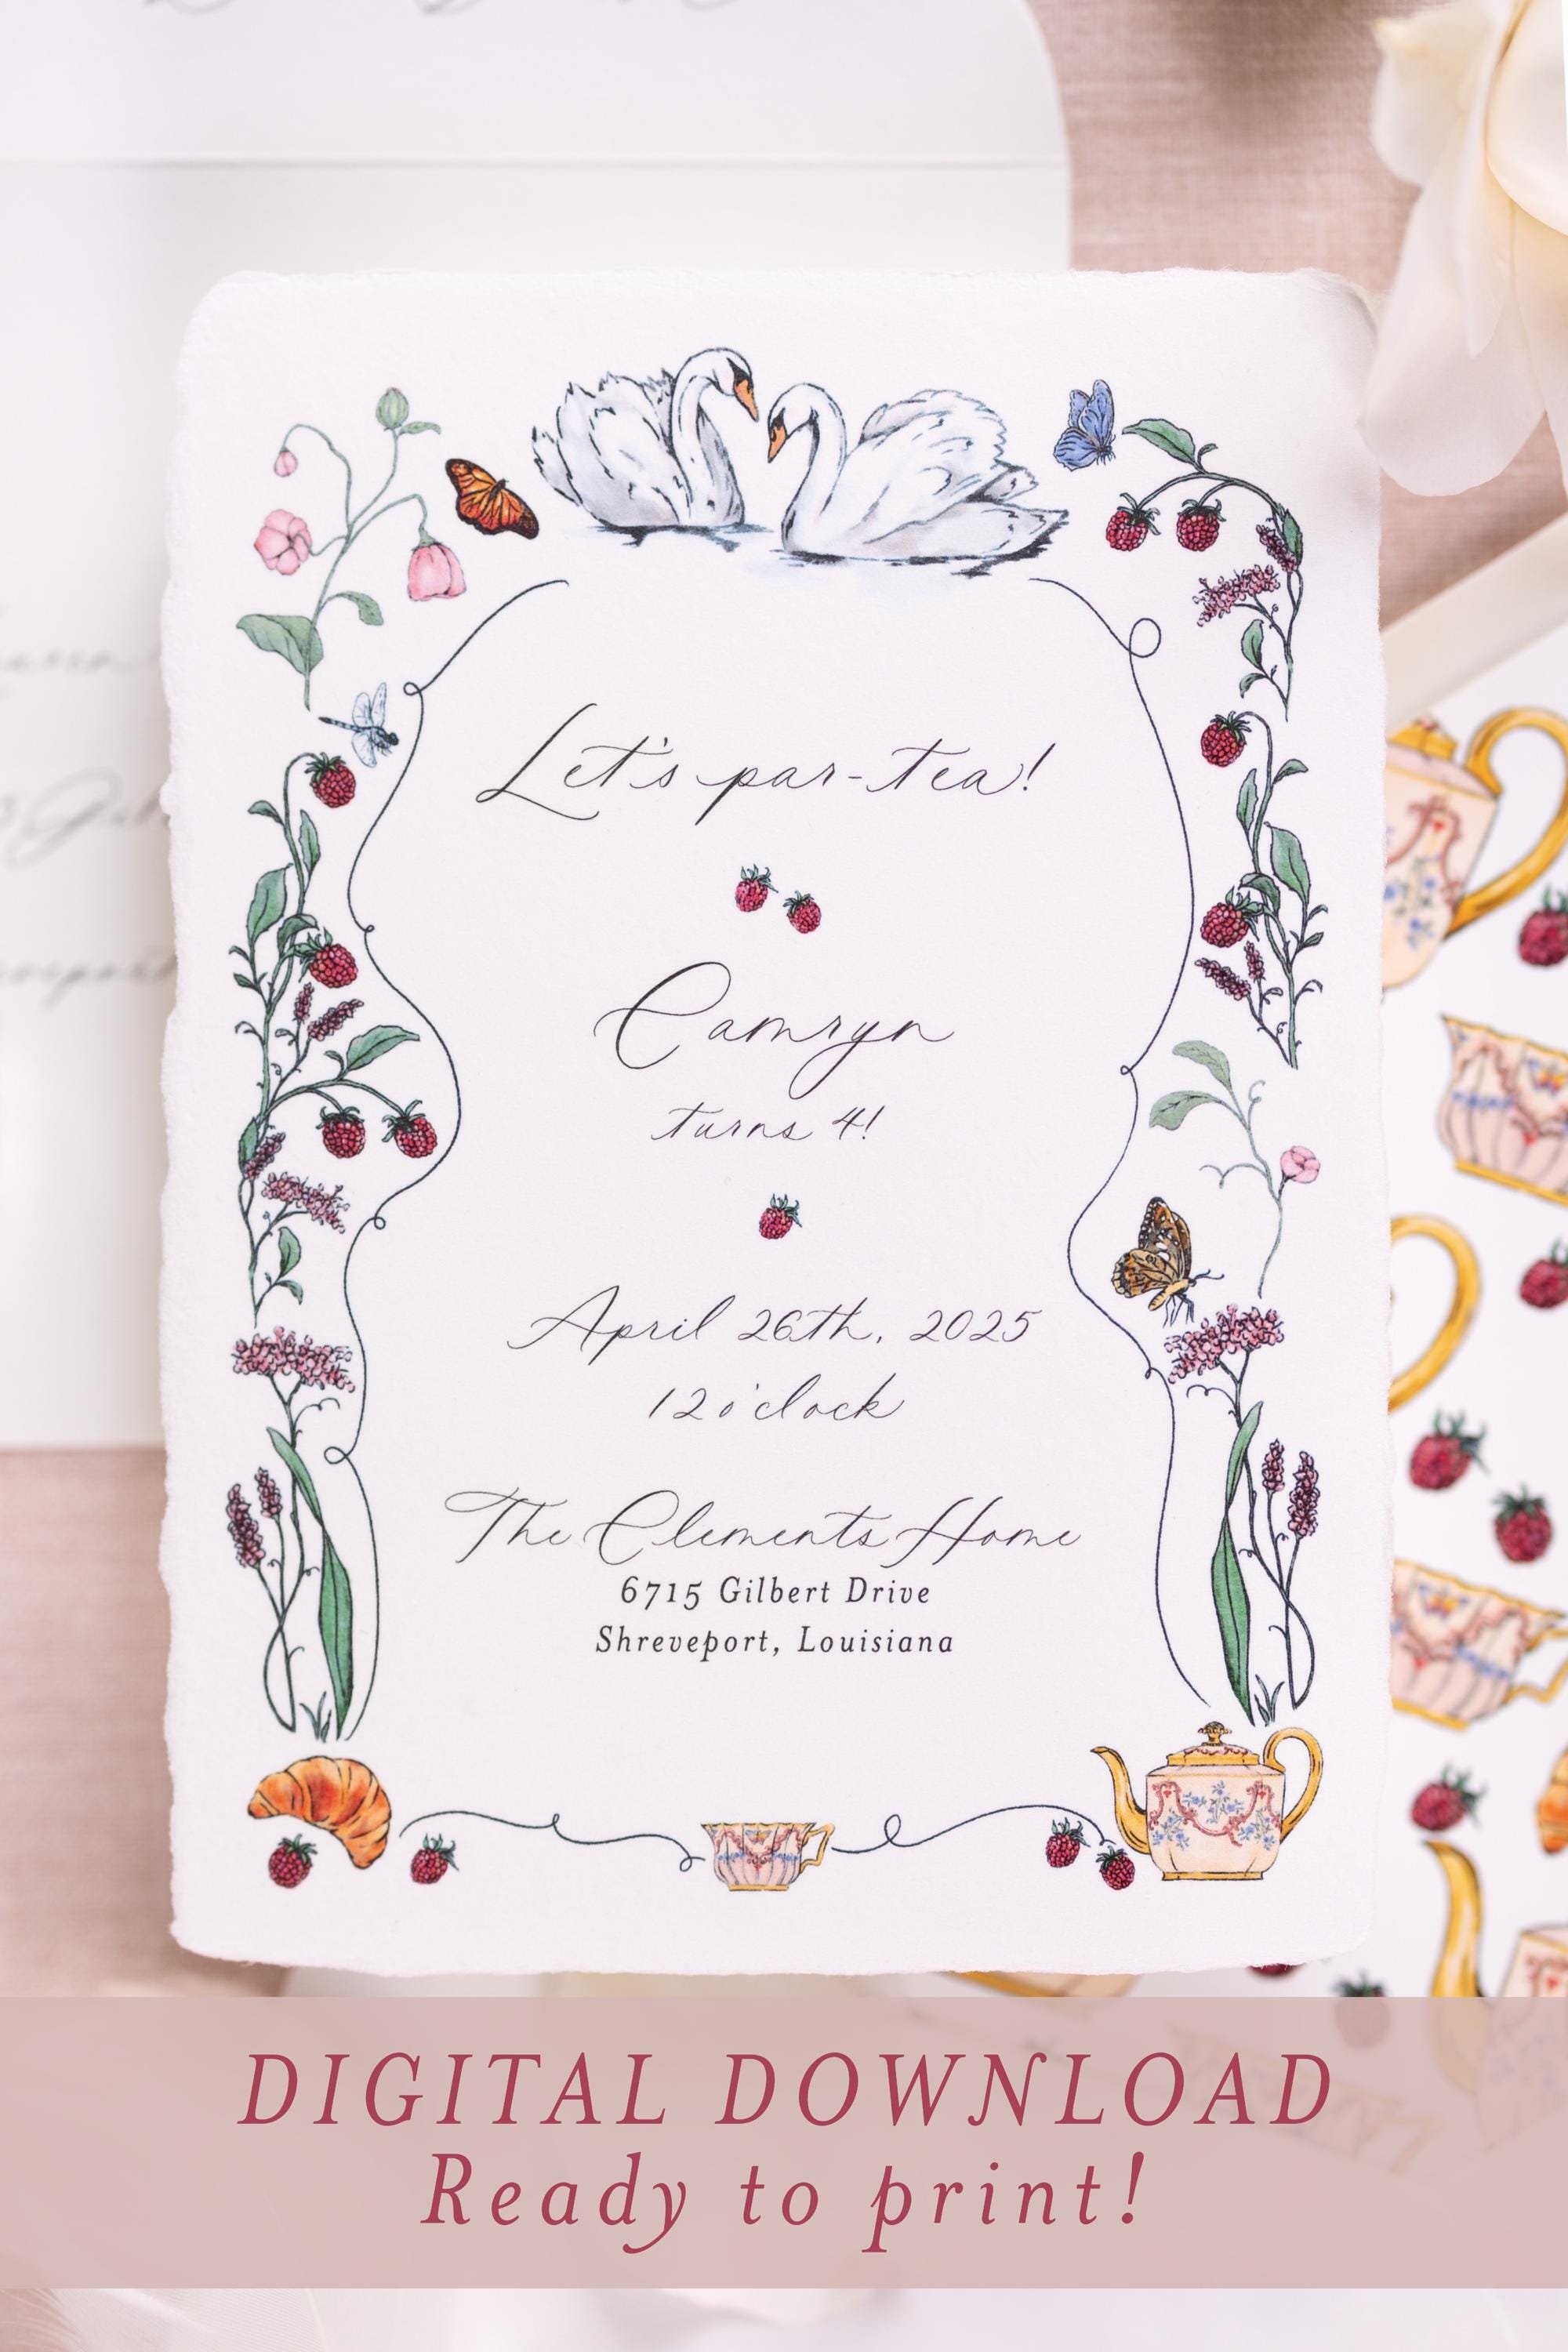 Let's par-tea!
Camryn
turns 4!
April 26th, 2025
12 o'clock
The Clements Home
6715 Gilbert Drive
Shreveport, Louisiana
DIGITAL DOWNLOAD
Ready to print!